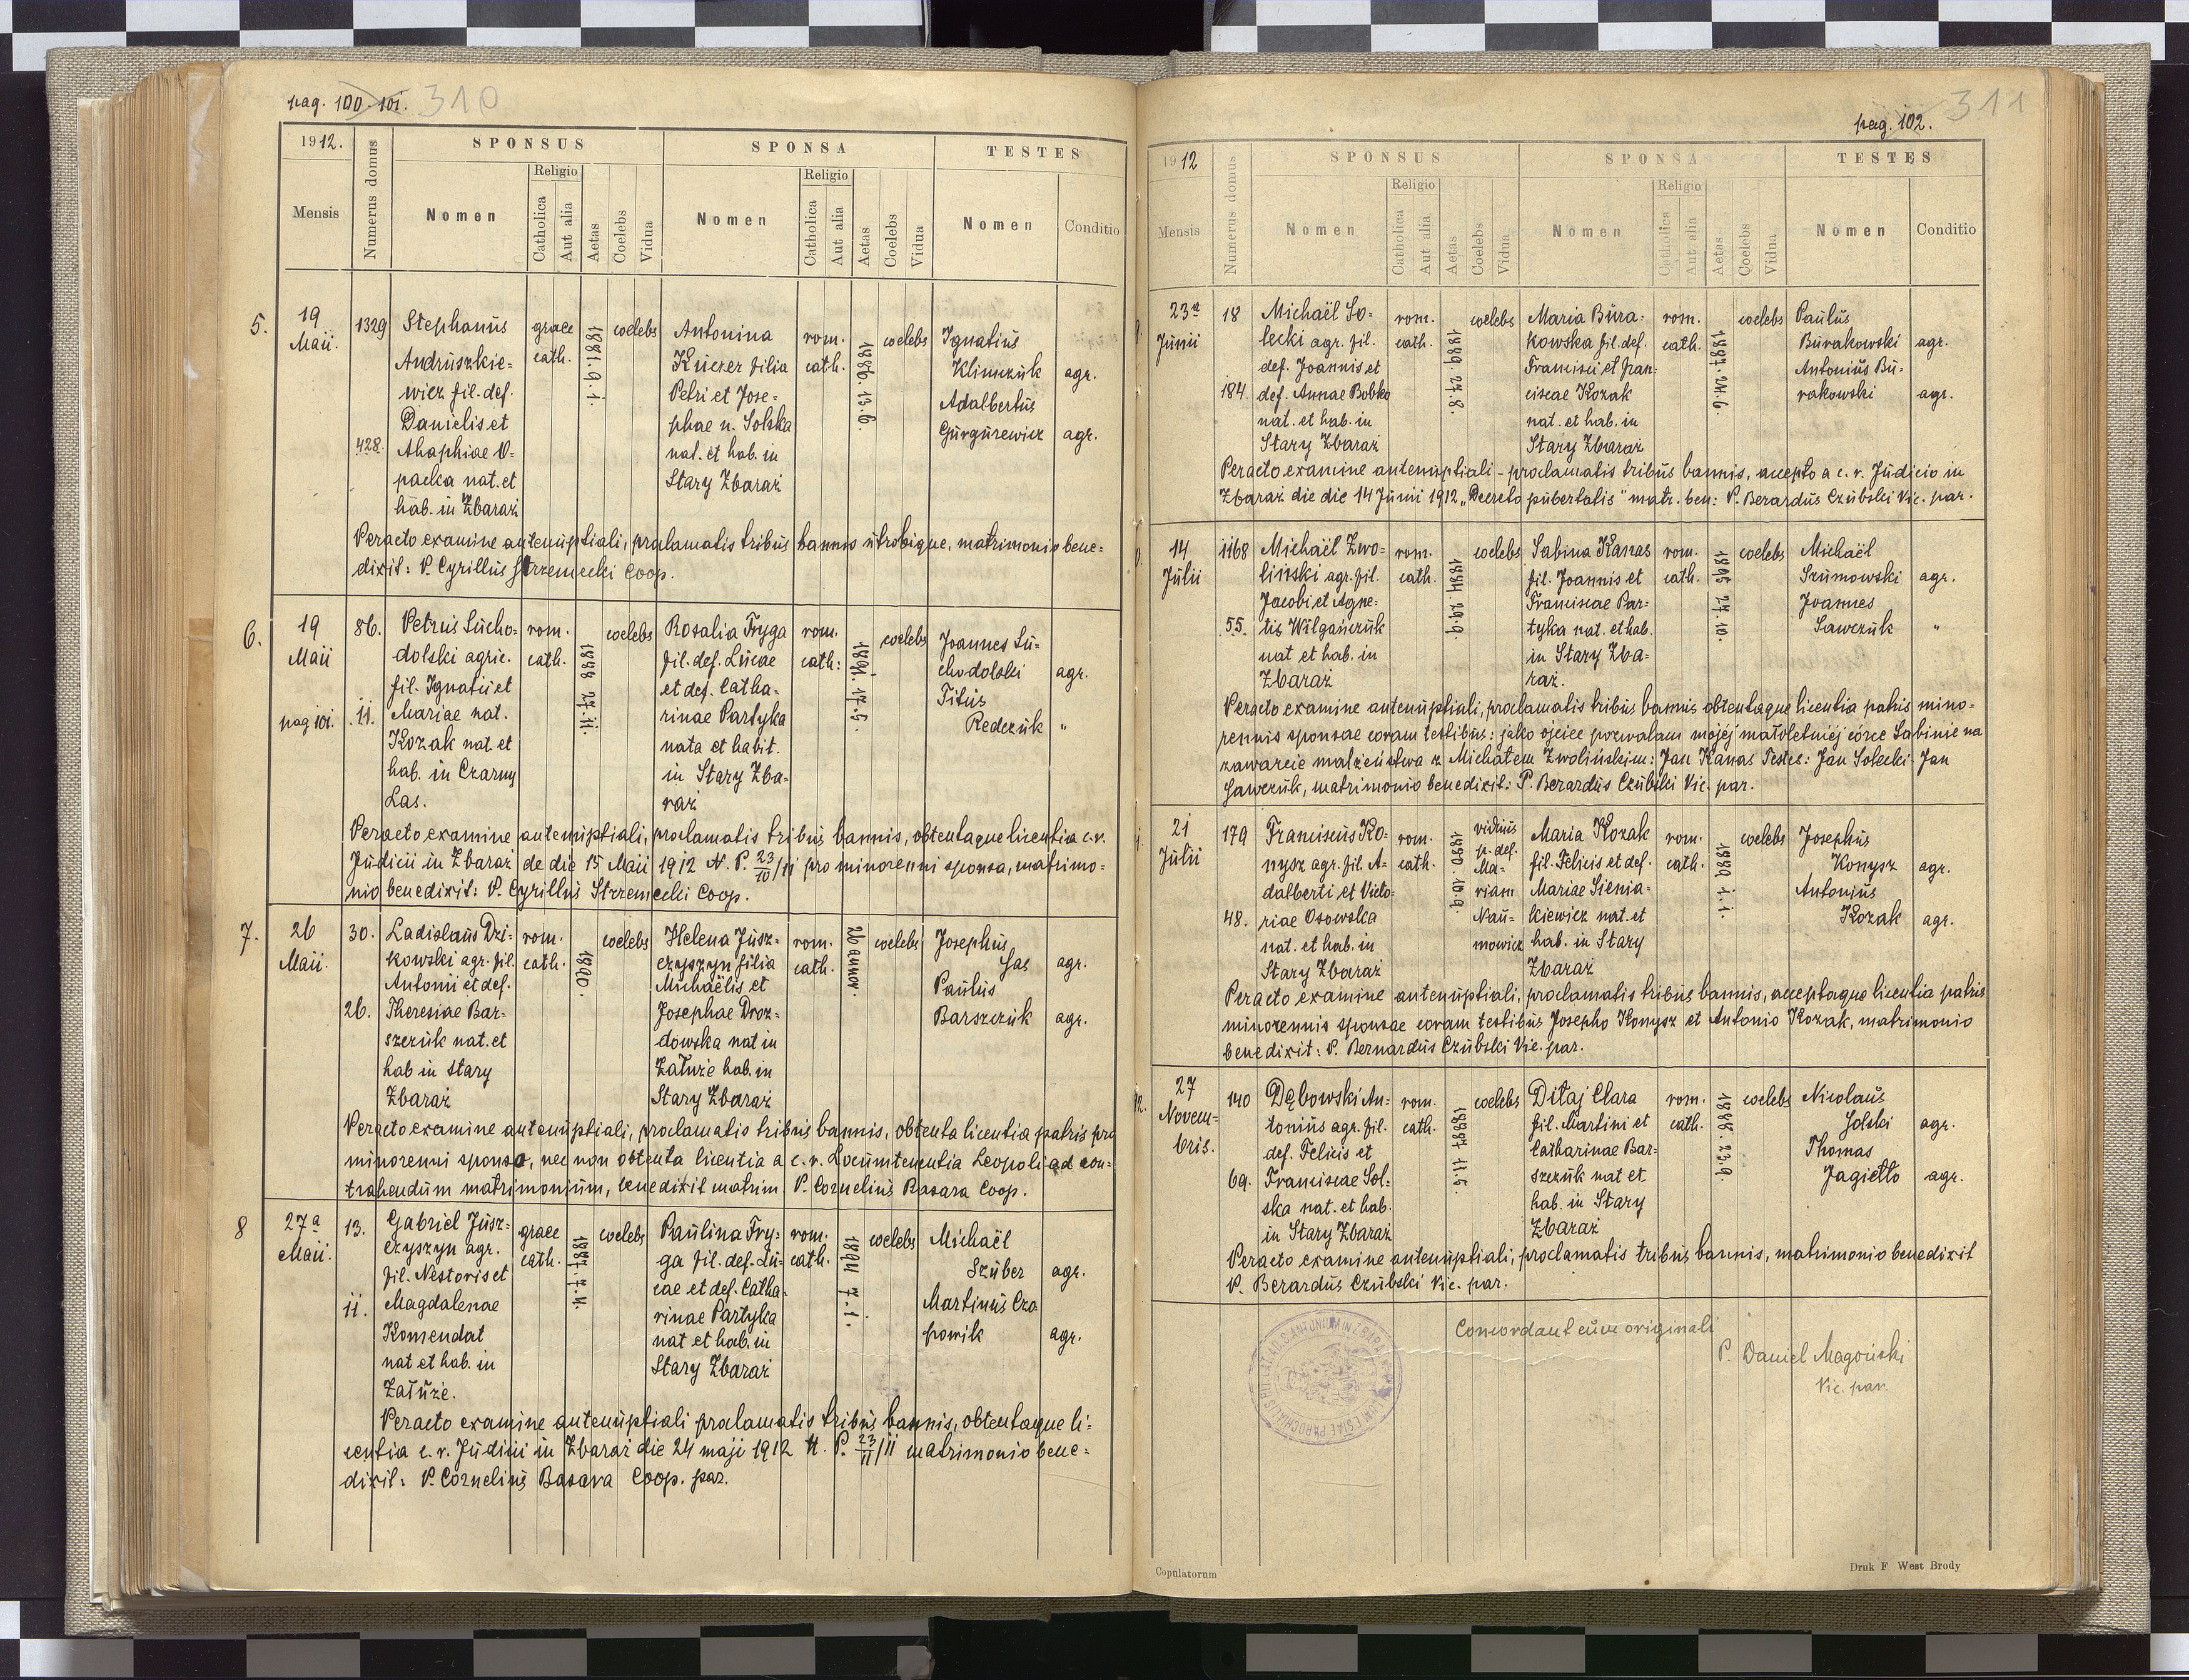 pag. 100-101. 310
1912.
Mensis
Numerus domus
SPONSUS
Nomen
Religio
Catholica
Aut alia
Aetas
Coelebs
Vidua
SPONSA
Nomen
Religio
Catholica
Aut alia
Aetas
Coelebs
Vidua
TESTES
Nomen
Conditio
5.
19
Maii.
1329
428.
Stephanus
Andruszkie-
wicz fil. def.
Danielis et
Ahaphiae O-
packa nat. et
hab. in Zbaraż
graec
cath.
1881. 9. 1.
coelebs
Antonina
Kucxer filia
Petri et Jose-
phae n. Solska
nat. et hab. in
Stary Zbaraż
rom.
cath.
1886. 13. 6.
coelebs
Ignatius
Klimczuk
agr.
Adalbertus
Gurgurewicz
agr.
Peracto examine antenuptiali, proclamatis tribus bannis utrobique, matrimonio bene-
dixit: P. Cyrillus Strzemecki Coop.
6.
19
Maii
pag 101.
86.
11.
Petrus Sucho-
dolski agric.
fil. Ignatii et
Mariae nat.
Kozak nat. et
hab. in Czarny
Las.
rom.
cath.
1888 27. 11.
coelebs
Rosalia Fryga
fil. def. Lucae
et def. Catha-
rinae Partyka
nata et habit.
in Stary Zba-
raż
rom.
cath:
1891. 17. 5.
coelebs
Joannes Su-
chodolski
agr.
Titus
Redczuk
"
Peracto examine antenuptiali, proclamatis tribus bannis, obtentaque licentia c. r.
Judicii in Zbaraż de die 15 Maii 1912 N. P. 23/10/11 pro minorenni sponsa, matrimo-
nio benedixit: P. Cyrillus Strzemecki Coop.
7.
26
Maii.
30.
26.
Ladislaus Dzi-
kowski agr. fil.
Antonii et def.
Theresiae Bar-
szczuk nat. et
hab in Stary
Zbaraż
rom.
cath.
1890.
coelebs
Helena Jusz-
czyszyn filia
Michaëlis et
Josephae Droz-
dowska nat in
Załuże hab. in
Stary Zbaraż
rom.
cath.
20 annor.
coelebs
Josephus
Gas
agr.
Paulus
Barszczuk
agr.
Peracto examine antenuptiali, proclamatis tribus bannis, obtenta licentia patris pro
minorenni sponsa, nec non obtenta licentia a c. r. Locumtenentia Leopoli ad con-
trahendum matrimonium, benedixit matrim P. Cornelius Basara Coop.
8
27a
Maii.
13.
11.
Gabriel Jusz-
czyszyn agr.
fil. Nestoris et
Magdalenae
Komendat
nat et hab. in
Załuże.
graec
cath.
1887 7. 4.
coelebs
Paulina Fry-
ga fil. def. Lu-
cae et def. Catha-
rinae Partyka
nat et hab. in
Stary Zbaraż
rom.
cath.
1894 7. 1.
coelebs
Michaël
Szuber
agr.
Martinus Cza
powik
agr.
Peracto examine antenuptiali proclamatis tribus bannis, obtentaque li-
centia c. r. Judicii in Zbaraż die 24 maji 1912 N. P. 23/11/11 matrimonio bene-
dixit: P. Cornelius Basara Coop. par.
pag. 102. 311
1912
Mensis
Numerus domus
SPONSUS
Nomen
Religio
Catholica
Aut alia
Aetas
Coelebs
Vidua
SPONSA
Nomen
Religio
Catholica
Aut alia
Aetas
Coelebs
Vidua
TESTES
Nomen
Conditio
23a
Junii
18
184.
Michaël So-
lecki agr. fil.
def. Joannis et
def. Annae Bobko
nat. et hab. in
Stary Zbaraż
rom.
cath.
1889. 27. 8.
coelebs
Maria Bura-
kowska fil. def.
Francisci et Fran-
ciscae Kozak
nat. et hab. in
Stary Zbaraż
rom.
cath.
1887. 24. 6.
coelebs
Paulus
Burakowski
agr.
Antonius Bu-
rakowski
agr.
Peracto examine antenuptiali - proclamatis tribus bannis, accepto a c. r. Judicio in
Zbaraż die die 14 Junii 1912 „Decreto pubertatis" matr. ben: P. Berardus Czubski Vic. par.
14
Julii
1168
55.
Michaël Zwo-
liński agr. fil.
Jacobi et Agne-
tis Wilgańczuk
nat et hab. in
Zbaraż
rom.
cath.
1884. 29. 9.
coelebs
Sabina Kanas
fil. Joannis et
Franciscae Par-
tyka nat. et hab.
in Stary Zba-
raż.
rom.
cath.
1895 27. 10.
coelebs
Michaël
Szumowski
agr.
Joannes
Sawczuk
"
Peracto examine antenuptiali, proclamatis tribus bannis obtentaque licentia patris mino-
rennis sponsae coram testibus: jako ojciec pozwalam mojéj małoletniéj córce Sabinie na
zawarcie małżeństwa z Michałem Zwolińskim: Jan Kanas Testes: Jan Solecki Jan
Sawczuk, matrimonio benedixit: P. Berardus Czubski Vic. par.
21
Julii
179
48.
Franciscus Ko-
nysz agr. fil A-
dalberti et Victo-
riae Osowska
nat. et hab. in
Stary Zbaraż
rom.
cath.
1880. 10. 9.
viduus
p. def.
Ma-
riam
Nau-
mowicz
Maria Kozak
fil. Felicis et def.
Mariae Sienia-
kiewicz nat. et
hab. in Stary
Zbaraż
rom.
cath.
1889 1. 1.
coelebs
Josephus
Konysz
agr.
Antonius
Kozak
agr.
Peracto examine antenuptiali, proclamatis tribus bannis, acceptaque licentia patris
minorennis sponsae coram testibus Josepho Konysz et Antonio Kozak, matrimonio
benedixit: P. Bernardus Czubski Vic. par.
12.
27
Novem-
bris.
140
69.
Dębowski An-
tonius agr. fil.
def. Felicis et
Franciscae Sol-
ska nat. et hab.
in Stary Zbaraż
rom.
cath.
1887 11. 5.
coelebs
Ditaj Clara
fil. Martini et
Catharinae Bar-
szczuk nat et
hab. in Stary
Zbaraż
rom.
cath.
1888. 23. 9.
coelebs
Nicolaus
Golski
agr.
Thomas
Jagiełło
agr.
Peracto examine antenuptiali, proclamatis tribus bannis, matrimonio benedixit
P. Berardus Czubski Vic. par.
Concordant cum originali
P. Daniel Magoński
Vic. par.
Copulatorum
Druk F West Brody